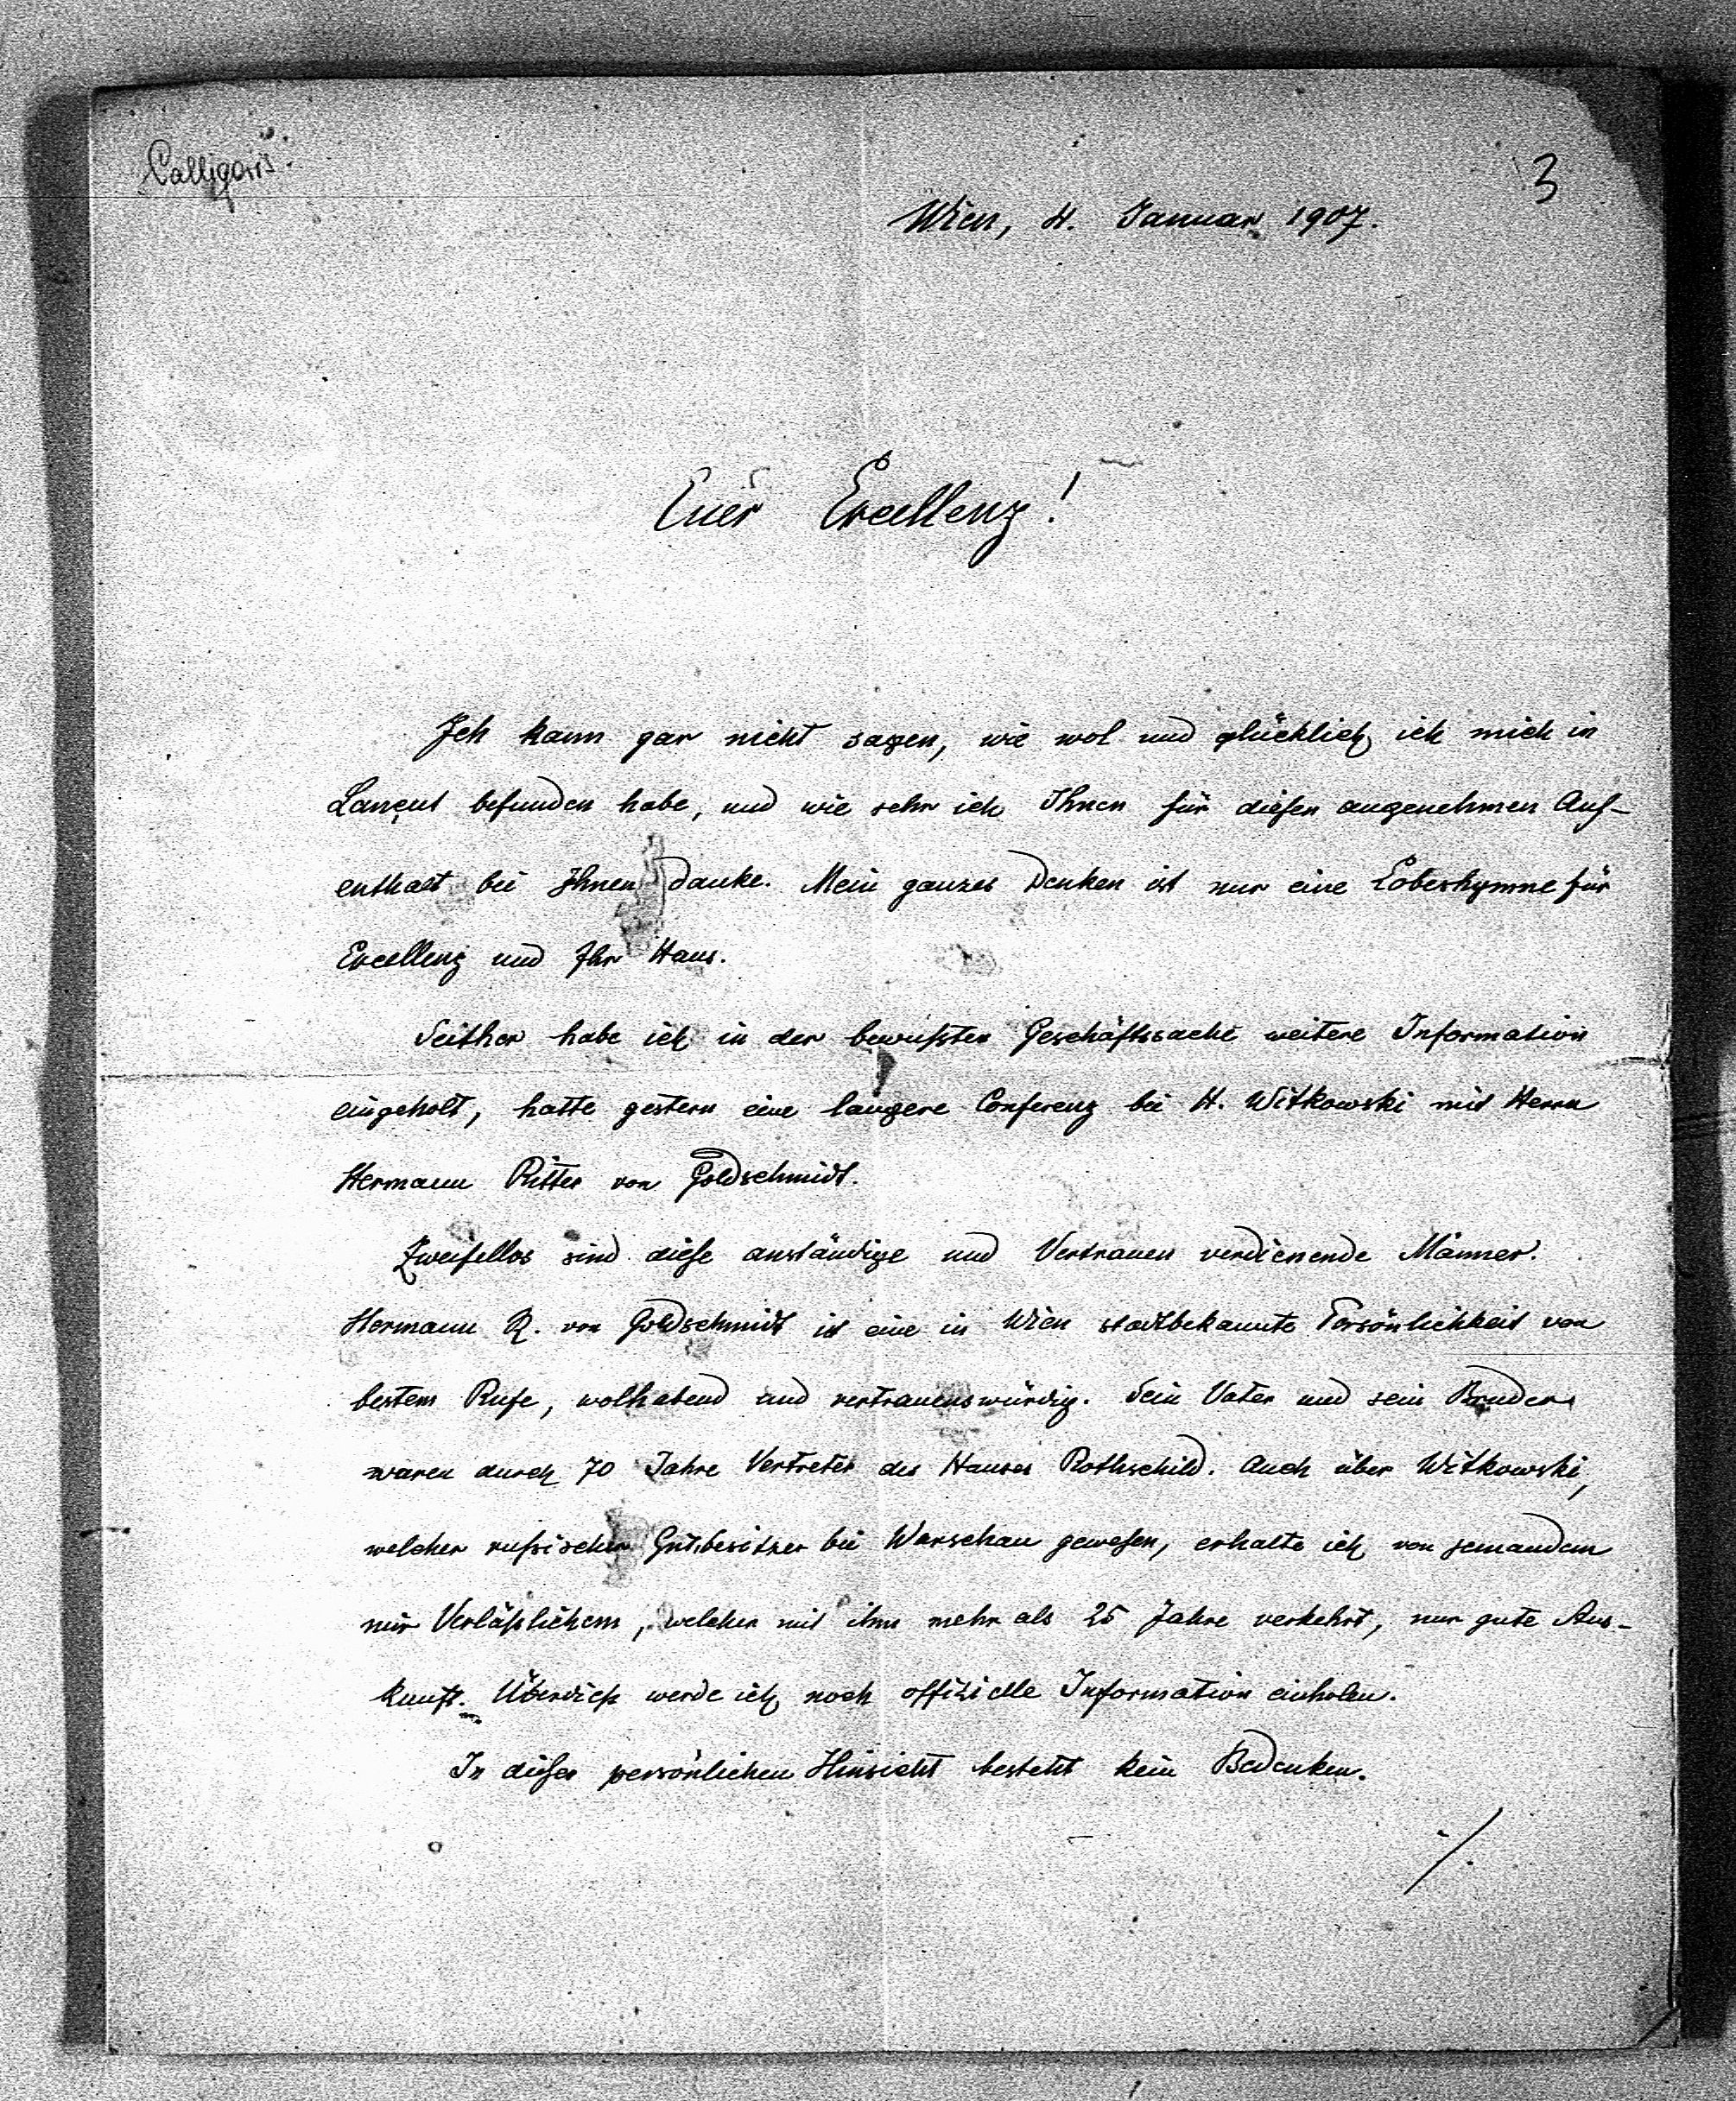 Calligaris.
3
Wien, 4. Januar 1907.
Euer Excellenz!
Ich kann gar nicht sagen, wie wol und glücklich ich mich in
Lançut befunden habe, und wie sehr ich Ihnen für diesen angenehmen Auf-
enthalt bei Ihnen danke. Mein ganzes Denken ist nur eine Lobeshymne für
Excellenz und Ihr Haus.
Seither habe ich in der bewußten Geschäftssache weitere Information
eingeholt, hatte gestern eine längere Conferenz bei H. Witkowski mit Herrn
Hermann Ritter von Goldschmidt.
Zweifellos sind diese anständige und Vertrauen verdienende Männer.
Hermann R. von Goldschmidt ist eine in Wien stadtbekannte Persönlichkeit von
bestem Rufe, wolhabend und vertrauenswürdig. Sein Vater und sein Bruder
waren durch 70 Jahre Vertreter des Hauses Rothschild. Auch über Witkowski,
welcher rußischer Gutsbesitzer bei Warschau gewesen, erhalte ich von jemandem
mir Verläßlichem, welcher mit ihm mehr als 25 Jahre verkehrt, nur gute Aus-
kunft. Überdieß werde ich noch offizielle Information einholen.
In dieser persönlichen Hinsicht besteht kein Bedenken.
./.